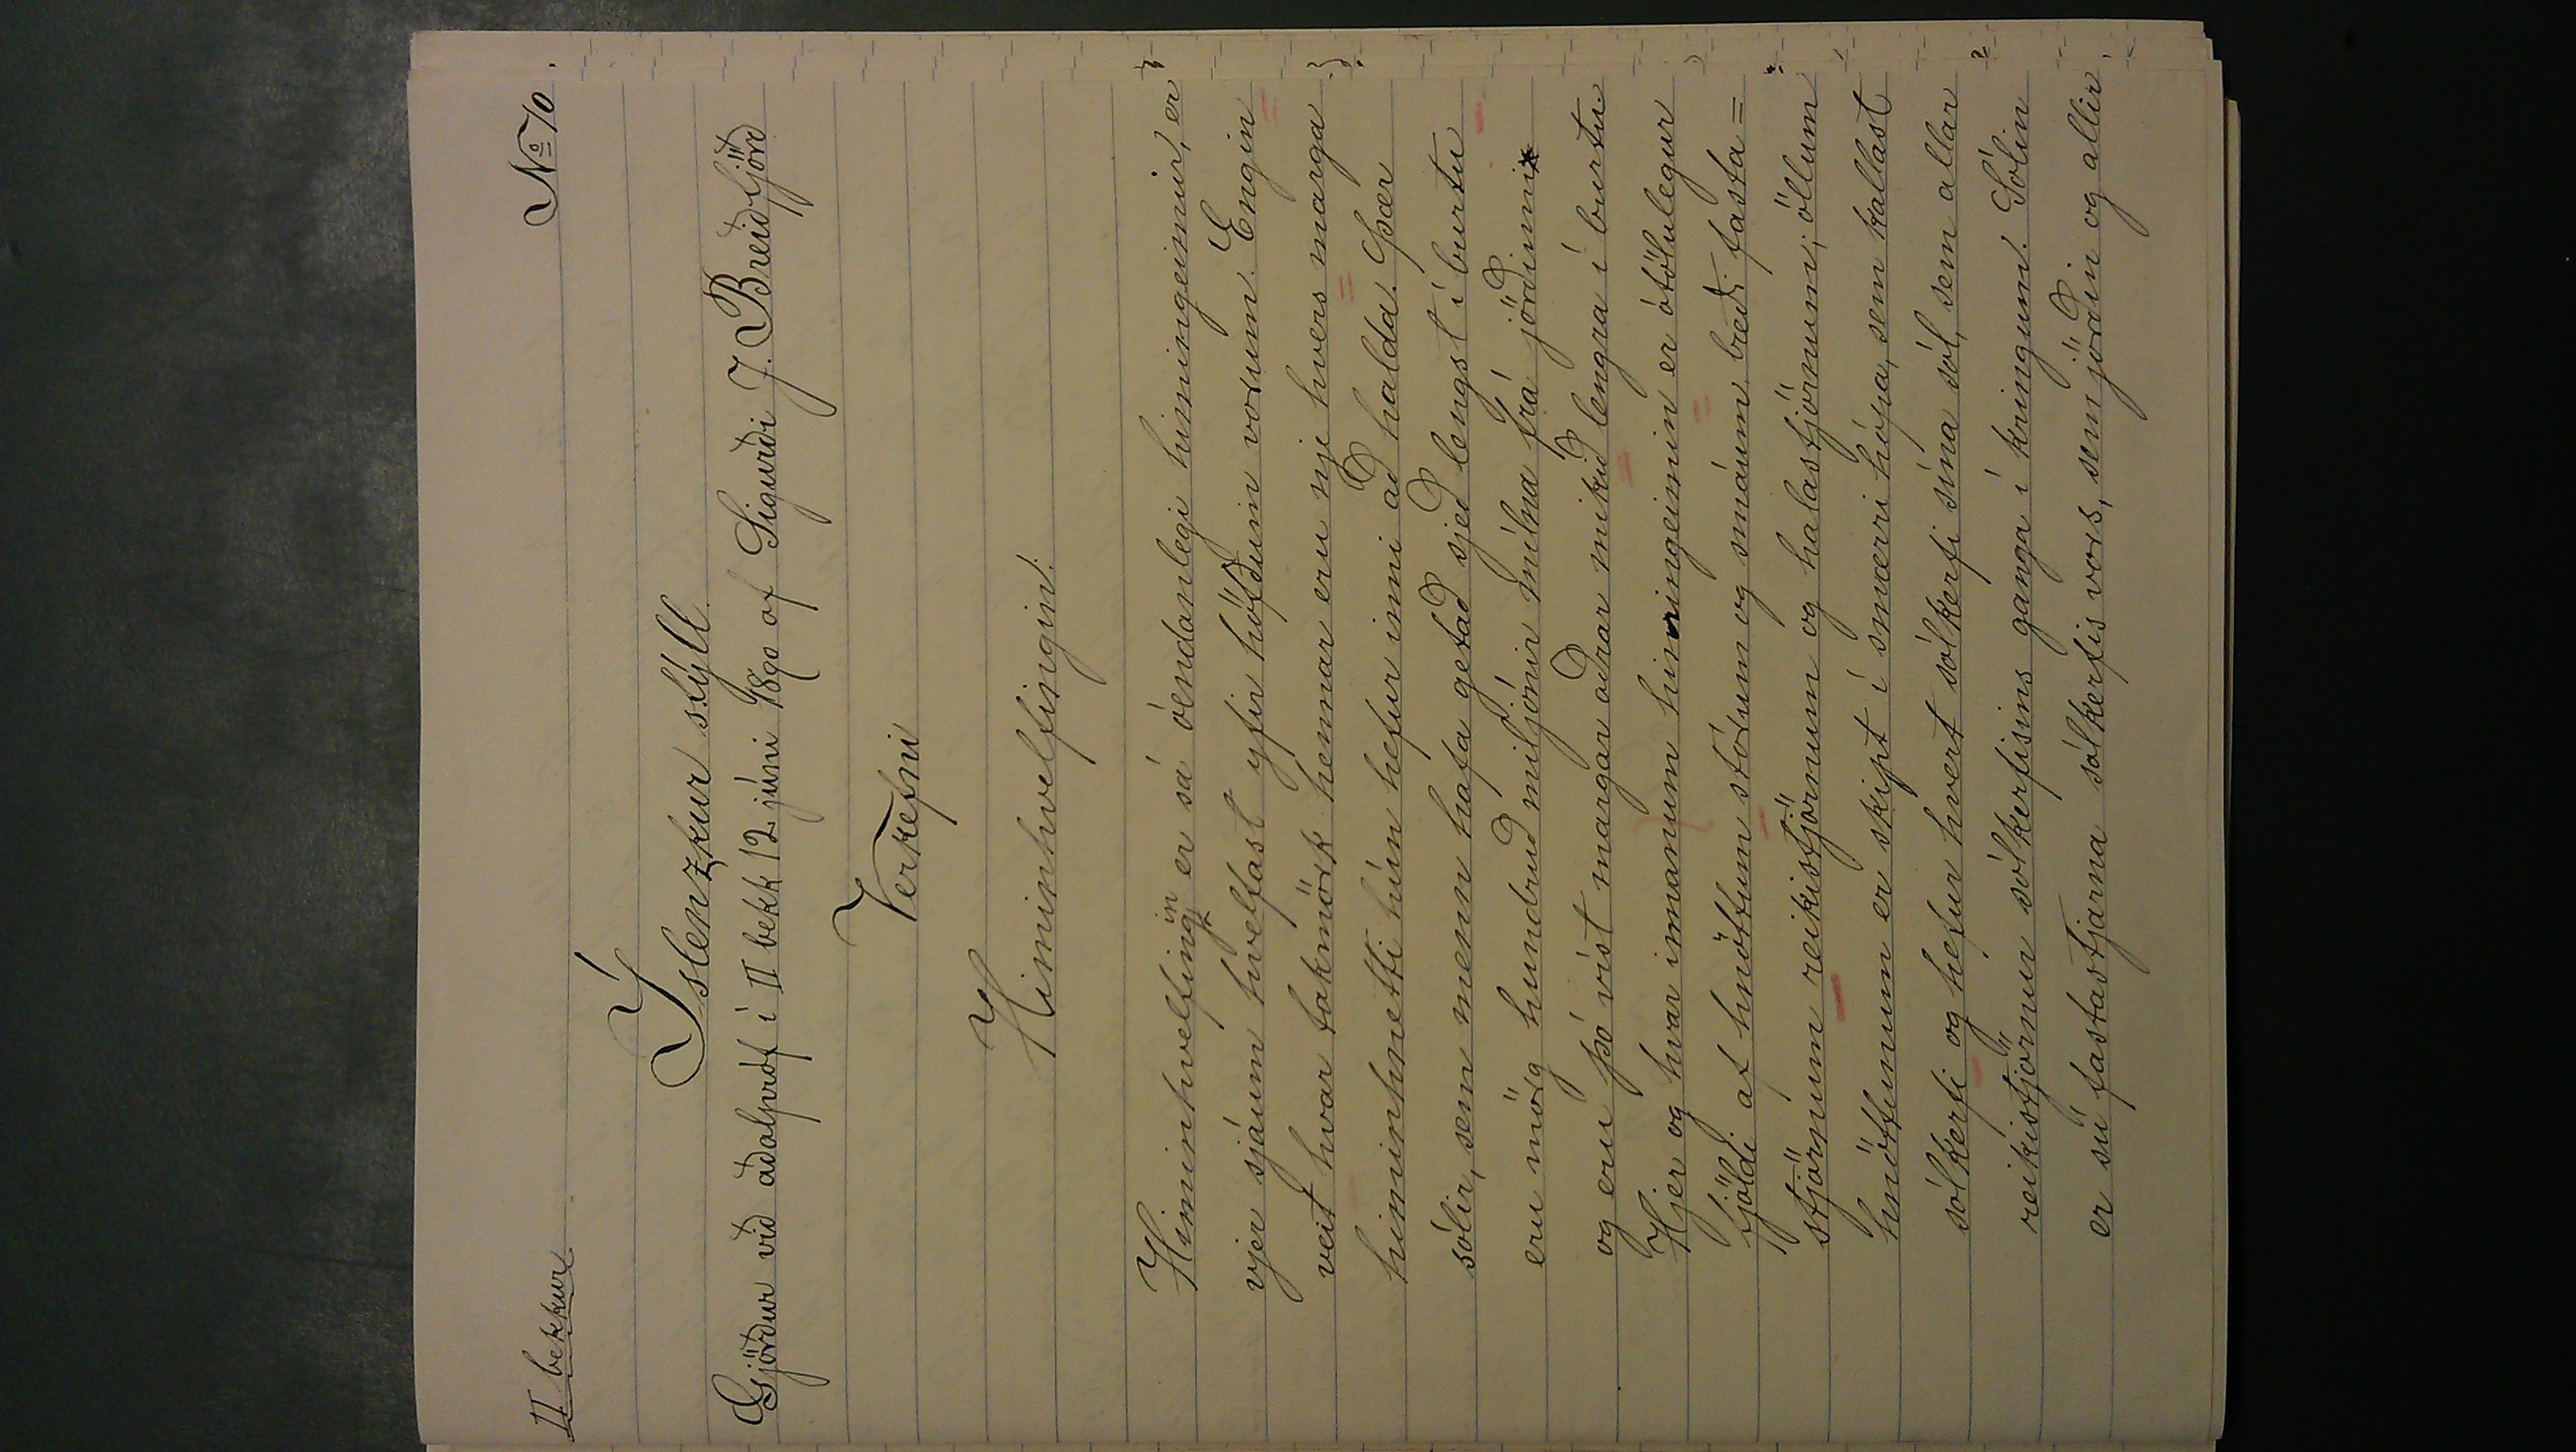 II bekkur
No 10.
Íslenzkur stýll.
Gjörður við aðalpróf í II bekk 12 júni 1890 af Sigurði J. Breiðfjörð
Verkefni
Himinhvelfingin.
Himinhvelfingin er sá óendanlegi himingeimur, er
vjer sjáum hvelfast yfir höfðum vorum. Engin
veit hvar takmörk hennar eru nje hvers marga
himinhnetti hún hefur inni að halda. Þær
sólir, sem menn hafa getað sjeð lengst í burtu
eru mörg hundruð miljónir mílna frá jörðinni
og eru þó víst margar aðrar mikið lengra í burtu
Hjer og hvar innanum himingeiminn er ótölulegur
fjöldi af hnöttum stórum og smáum, bæði fasta=
stjörnum reikistjörnum og halastjörnum; öllum
hnöttunum er skipt í smærri hópa, sem kallast
sólkerfi og hefur hvert sólkerfi sína sól, sem allar
reikistjörnur sólkerfisins ganga í kringum. Sólin
er sú fastastjarna sólkerfis vors, sem jörðin og allir